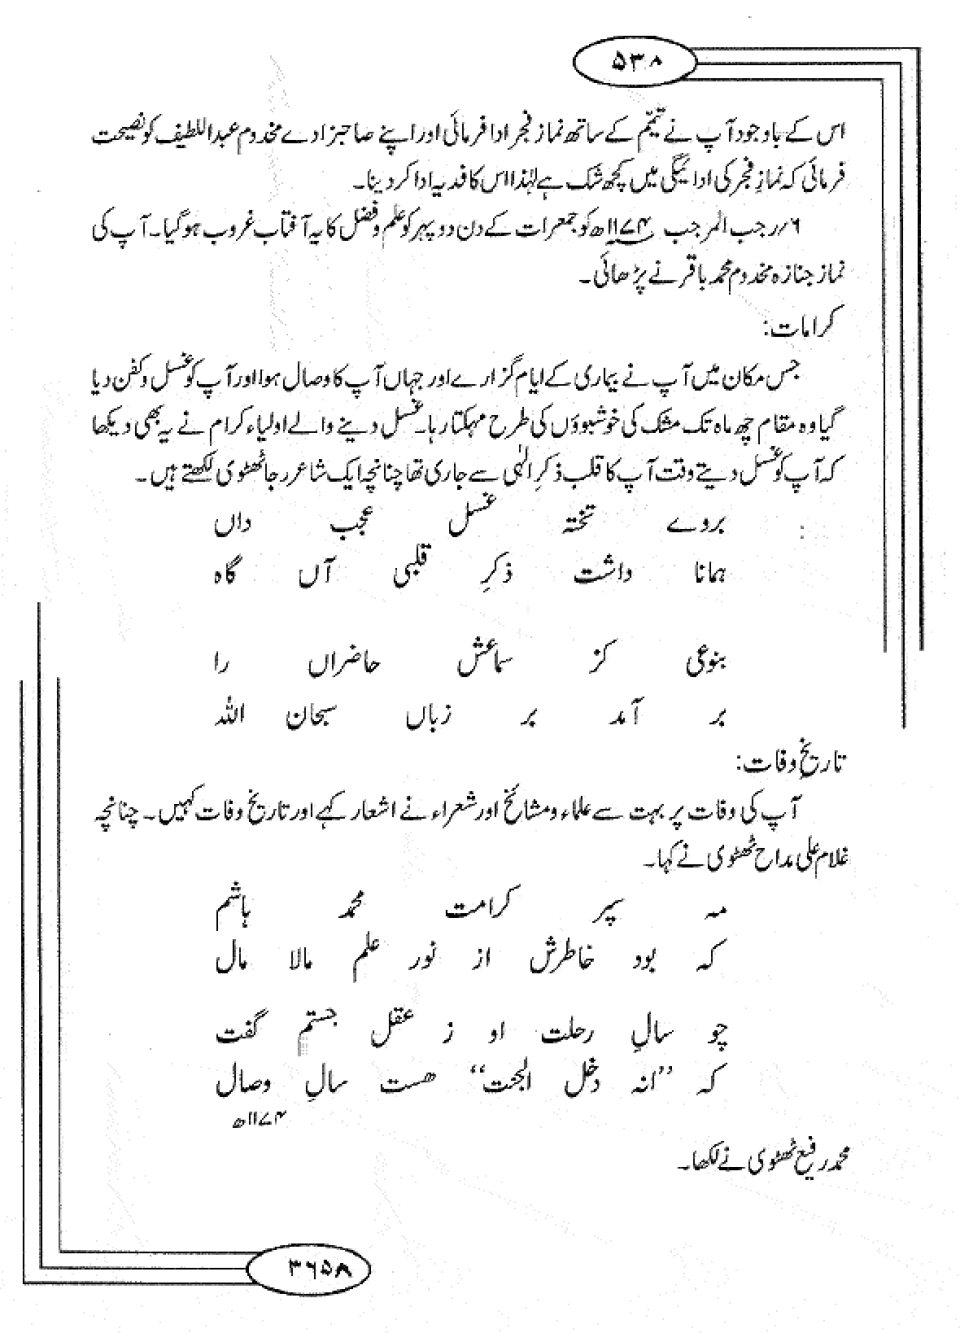 ۵۳۸
اس کے باوجود آپ نے تیمّم کے ساتھ نماز فجر ادا فرمائی اور اپنے صاحبزادے مخدوم عبداللطیف کو نصیحت
فرمائی کہ نمازِ فجر کی ادائیگی میں کچھ شک ہے لہٰذا اس کا فدیہ ادا کر دینا۔
۶؍رجب المرجب ۱۱۷۴ھ کو جمعرات کے دن دوپہر کو علم و فضل کا یہ آفتاب غروب ہو گیا۔ آپ کی
نماز جنازہ مخدوم محمد باقر نے پڑھائی۔
کرامات:
جس مکان میں آپ نے بیماری کے ایام گزارے اور جہاں آپ کا وصال ہوا اور آپ کو غسل و کفن دیا
گیا وہ مقام چھ ماہ تک مشک کی خوشبوؤں کی طرح مہکتا رہا۔ غسل دینے والے اولیاء کرام نے یہ بھی دیکھا
کہ آپ کو غسل دیتے وقت آپ کا قلب ذکرِ الٰہی سے جاری تھا چنانچہ ایک شاعر رجا ٹھٹوی لکھتے ہیں۔
بروے تختہ غسل عجب داں
ہمانا داشت ذکرِ قلبی آں گاہ
بنوعی کز سماعش حاضراں را
بر آمد بر زباں سبحان اللہ
تاریخِ وفات:
آپ کی وفات پر بہت سے علماء و مشائخ اور شعراء نے اشعار کہے اور تاریخ وفات کہیں۔ چنانچہ
غلام علی مداح ٹھٹوی نے کہا۔
مہ سپہر کرامت محمد ہاشم
کہ بود خاطرش از نور علم مالا مال
چو سالِ رحلت او ز عقل جستم گفت
کہ ’’انہ دخل الجنت‘‘ ھست سالِ وصال
۱۱۷۴ھ
محمد رفیع ٹھٹوی نے لکھا۔
۳۶۵۸